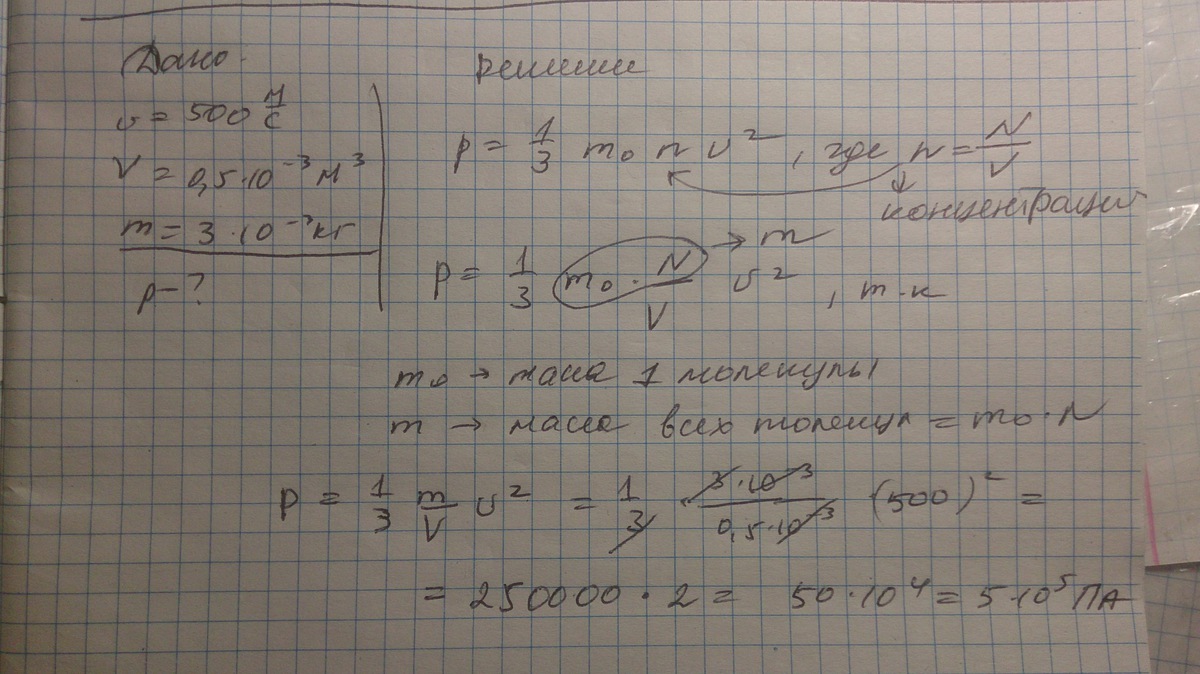 Дано
υ = 500 м/с
V = 0,5·10⁻³ м³
m = 3·10⁻³ кг
p - ?
решение
p = 1/3 m₀ n υ², где n = N/V
концентрация
p = 1/3 m₀ · N/V υ², т.к
→ m
m₀ → масса 1 молекулы
m → масса всех молекул = m₀·N
p = 1/3 m/V υ² = 1/3 · 3·10⁻³/0,5·10⁻³ (500)² =
= 250000 · 2 = 50·10⁴ = 5·10⁵ ПА